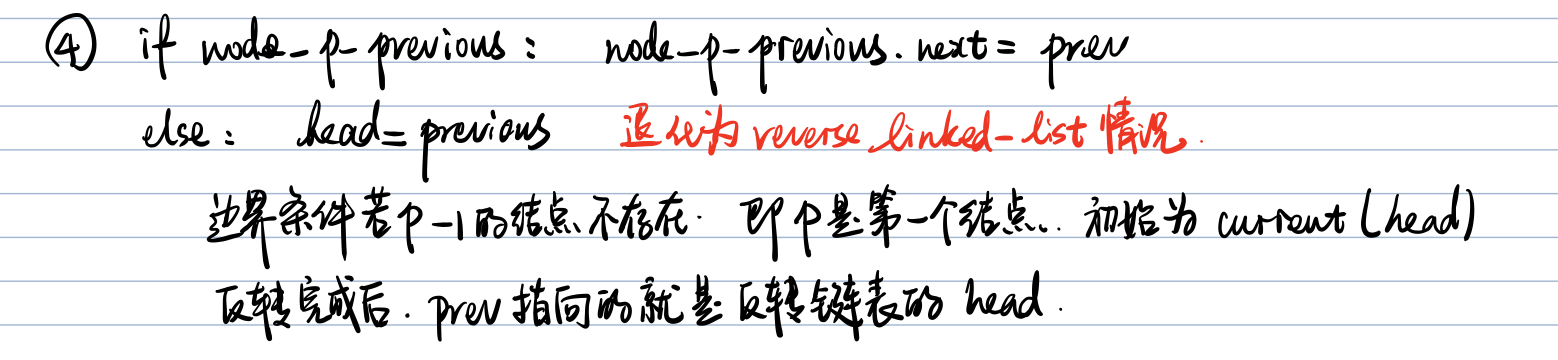 ④ if node-p-previous: node-p-previous.next = prev
else: head = previous 退化为 reverse linked-list 情况.
边界条件若 p-1 的结点不存在. 即 p 是第一个结点.. 初始为 current (head)
反转完成后. prev 指向的就是反转链表的 head.